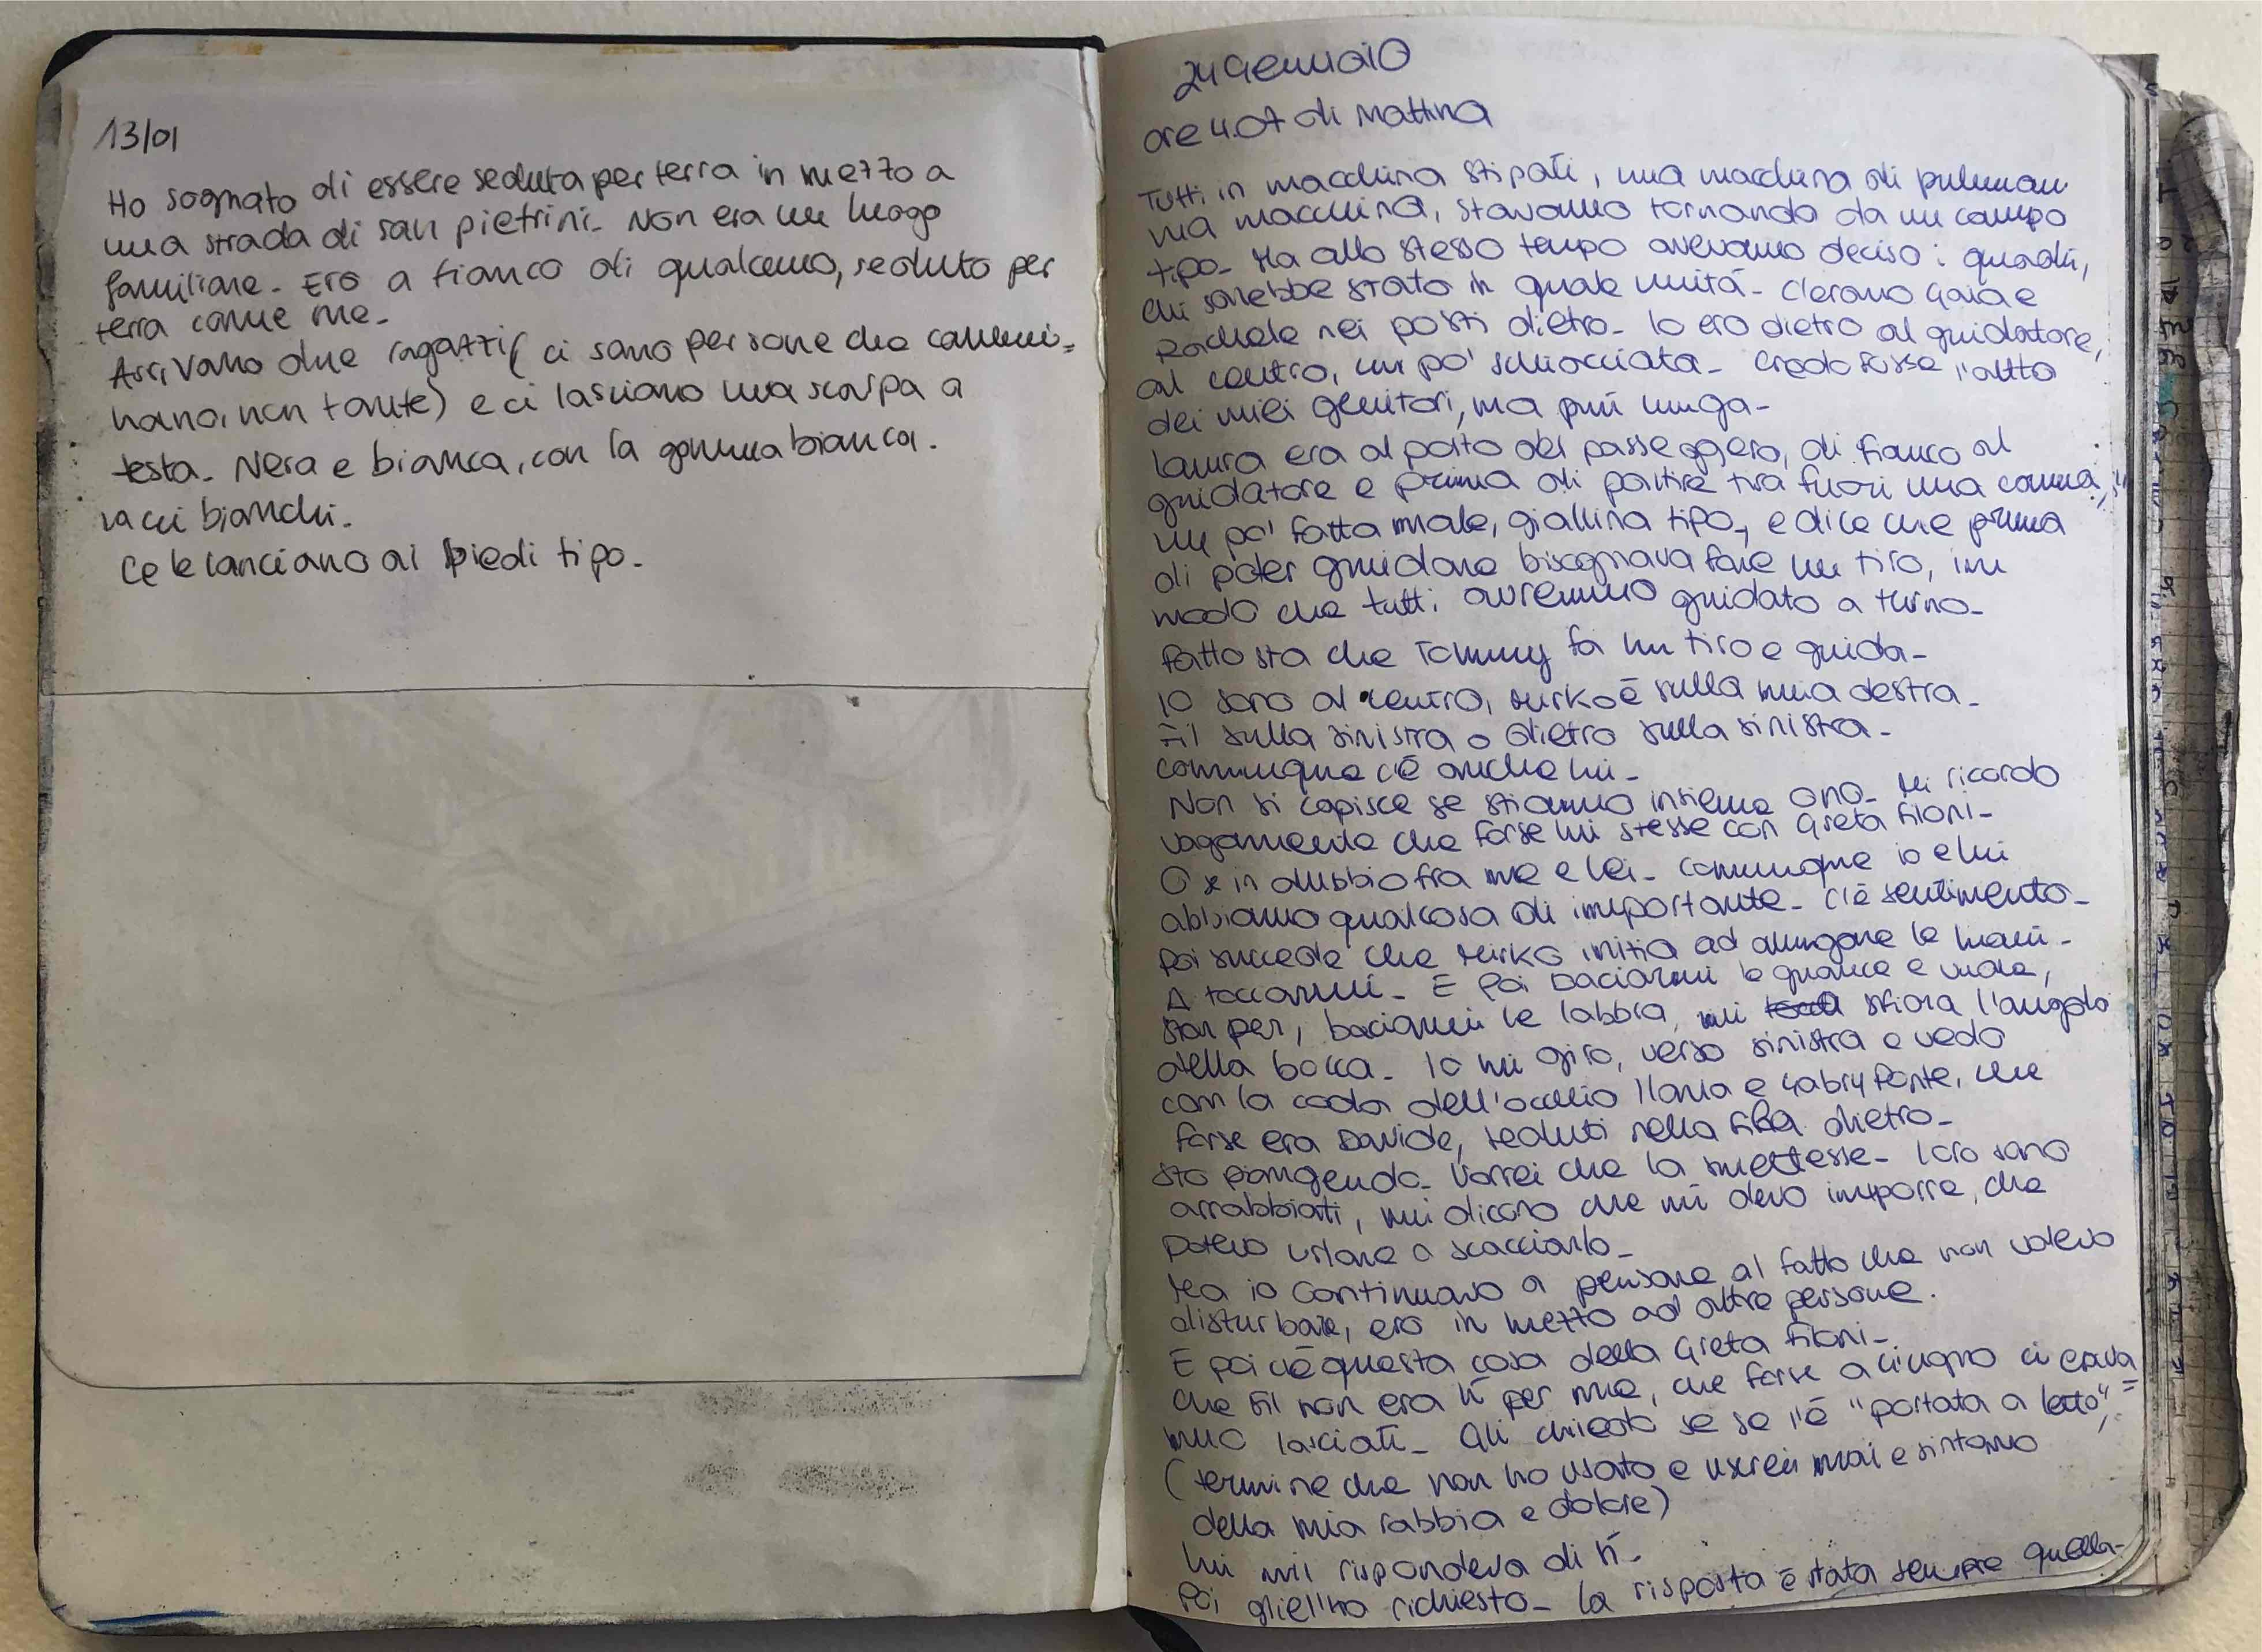 13/01
Ho sognato di essere seduta per terra in mezzo a
una strada di san pietrini. Non era un luogo
familiare. Ero a fianco di qualcuno, seduto per
terra come me.
Arrivano due ragazzi (ci sono persone che cammi=
nano, non tante) e ci lasciano una scarpa a
testa. Nera e bianca, con la gomma bianca.
lacci bianchi.
Ce le lanciano ai piedi tipo.
24 Gennaio
ore 4.07 di Mattina
Tutti in macchina stipati, una macchina di pulman
ma macchina, stavamo tornando da un campo
tipo. Ma allo stesso tempo avevamo deciso i quadri,
chi sarebbe stato in quale unità. C'erano Gaia e
Rachele nei posti dietro. Io ero dietro al guidatore,
al centro, un po' schiacciata. Credo fosse l'auto
dei miei genitori, ma più lunga.
Laura era al posto del passeggero, di fianco al
guidatore e prima di partire tira fuori una canna,
un po' fatta male, giallina tipo, e dice che prima
di poter guidare bisognava fare un tiro, in
modo che tutti avremmo guidato a turno.
Fatto sta che Tommy fa un tiro e guida.
Io sono al centro, Mirko è sulla mia destra.
Fil sulla sinistra o dietro sulla sinistra.
comunque c'è anche lui.
Non si capisce se stiamo insieme o no. Mi ricordo
vagamente che forse lui stesse con Greta Filoni.
O se in dubbio fra me e lei. Comunque io e lui
abbiamo qualcosa di importante. C'è sentimento.
Poi succede che Mirko inizia ad allungare le mani.
A toccarmi. E poi baciarmi le guance e vuole,
star per, baciarmi le labbra, mi sfiora l'angolo
della bocca. Io mi giro, verso sinistra e vedo
con la coda dell'occhio Ilaria e Gabry Ponte, che
forse era Davide, seduti nella fila dietro.
Sto piangendo. Vorrei che la smettesse. Loro sono
arrabbiati, mi dicono che mi devo imporre, che
potevo urlare o scacciarlo.
Ma io continuavo a pensare al fatto che non volevo
disturbare, ero in mezzo ad altre persone.
E poi c'è questa cosa della Greta Filoni.
Che Fil non era lì per me, che forse a Giugno ci erava
mo lasciati. Gli chiedo se se l'è "portata a letto",=
(termine che non ho usato e userei mai e sintomo
della mia rabbia e dolore)
Lui mi rispondeva di sì.
Poi gliel'ho richiesto. La risposta è stata sempre quella.